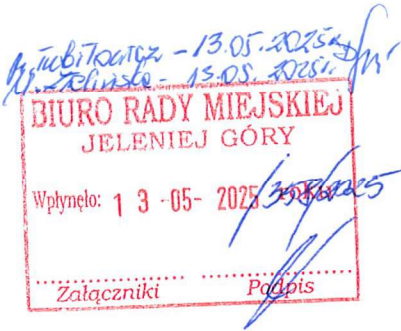 - 13.05.2025r.
M. Zielińska - 13.05.2025r.
BIURO RADY MIEJSKIEJ
JELENIEJ GÓRY
Wpłynęło: 13 -05- 2025
Załączniki Podpis